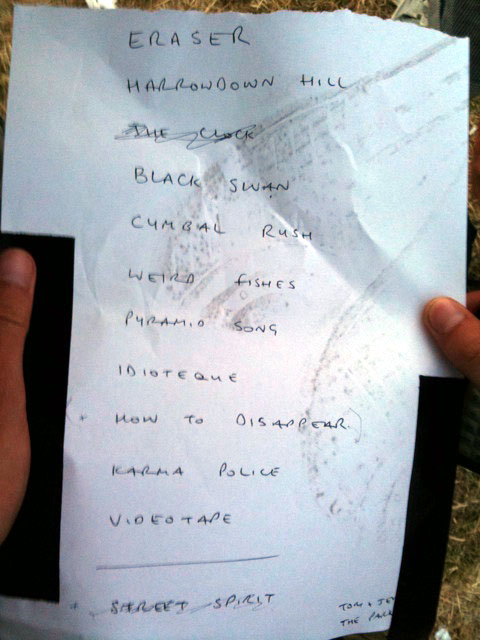 ERASER
HARROWDOWN HILL
THE CLOCK
BLACK SWAN
CYMBAL RUSH
WEIRD FISHES
PYRAMID SONG
IDIOTEQUE
+ HOW TO DISAPPEAR)
KARMA POLICE
VIDEOTAPE
+ STREET SPIRIT
TOM +
THE